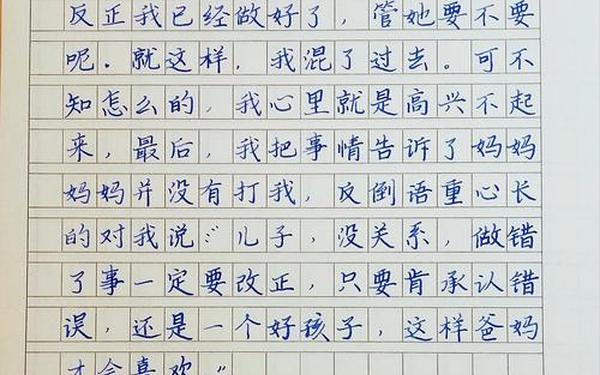 反正我已经做好了，管她要不要
呢．就这样，我混了过去。可不
知怎么的，我心里就是高兴不起
来，最后，我把事情告诉了妈妈
妈妈并没有打我，反倒语重心长
的对我说：“儿子，没关系，做错
了事一定要改正，只要肯承认错
误，还是一个好孩子，这样爸妈
才会喜欢”